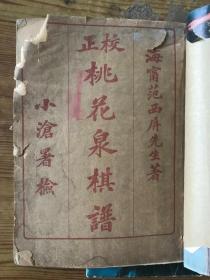 海甯范西屏先生著
校正
桃花泉棋譜
小滄署檢